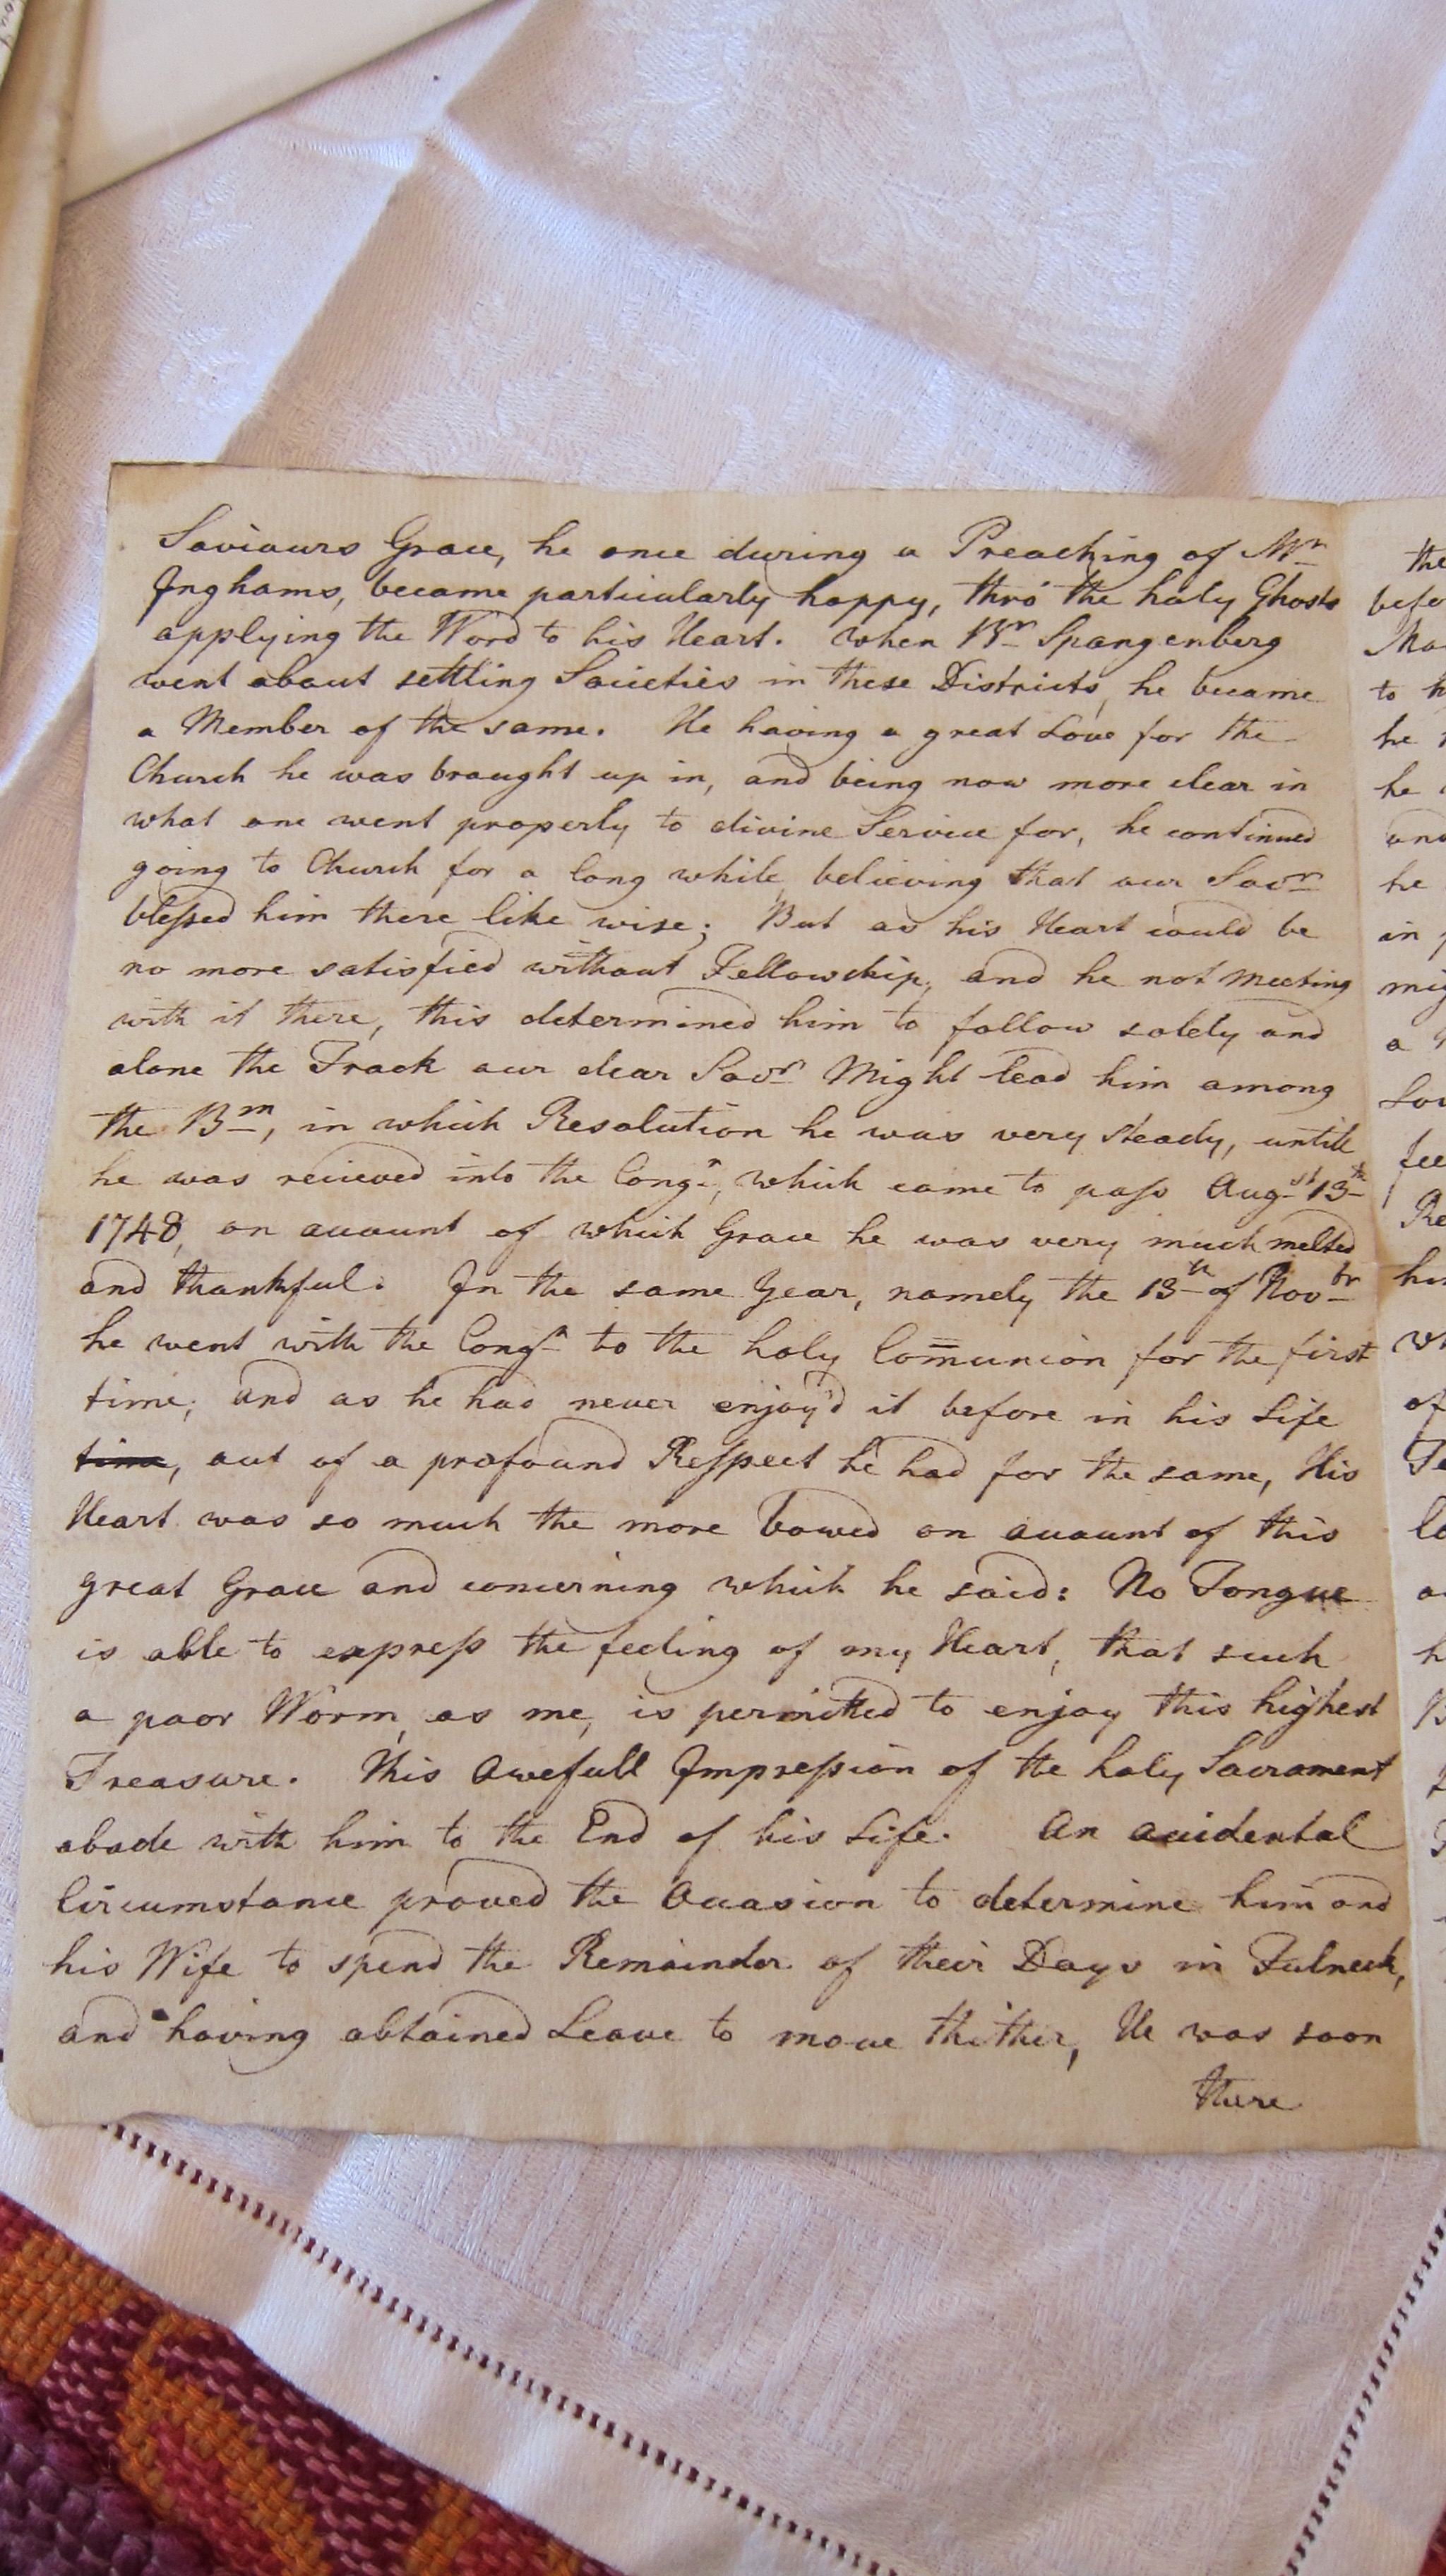 Saviours Grace, he once during a Preaching of Mr
Inghams, became particularly happy, thro' the holy Ghosts
applying the Word to his Heart. When Br Spangenberg
went about settling Societies in these Districts, he became
a Member of the same. He having a great Love for the
Church he was brought up in, and being now more clear in
what one went properly to divine Service for, he continued
going to Church for a long while, believing that our Savr
blessed him there like wise; But as his Heart could be
no more satisfied without Fellowship, and he not meeting
with it there, this determined him to follow solely and
alone the Track our dear Savr Might lead him among
the Brn, in which Resolution he was very steady, untill
he was recieved into the Congn, which came to pass Augst 13th
1748, on account of which Grace he was very much melted
and thankful. In the same Year, namely the 13th of Novbr
he went with the Congn to the holy Com̄union for the first
time; and as he had never enjoy'd it before in his Life
time, out of a profound Respect he had for the same, His
Heart was so much the more bowed on account of this
great Grace and concerning which he said: No Tongue
is able to express the feeling of my Heart, that such
a poor Worm, as me, is permitted to enjoy this highest
Treasure. This Awefull Impression of the holy Sacrament
abode with him to the End of his Life. An accidental
Circumstance proved the Occasion to determine him and
his Wife to spend the Remainder of their Days in Fulneck,
and having obtained Leave to move thither, He was soon
there